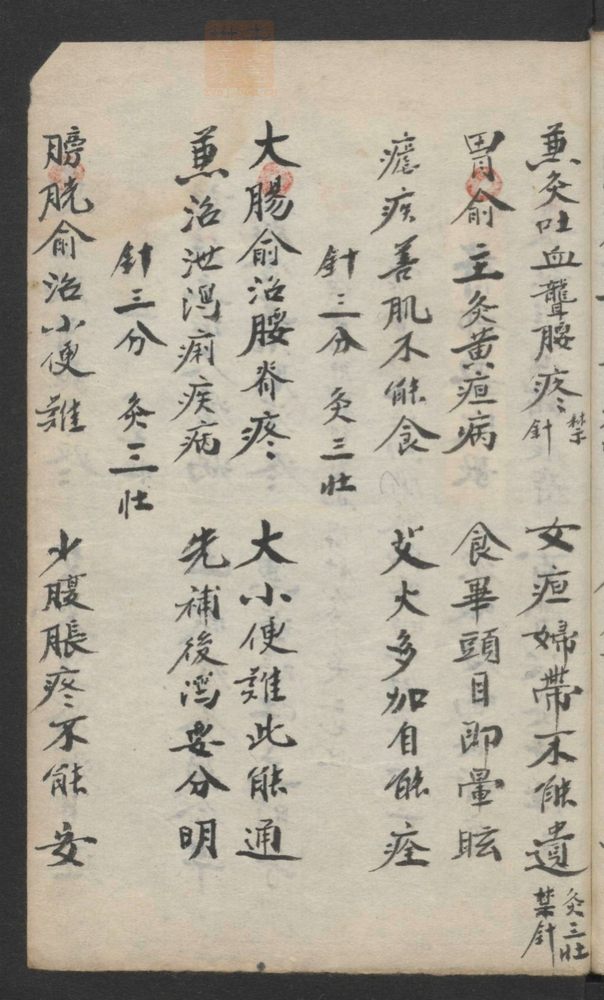 兼灸吐血聾腰疼 禁針 女疸婦帶不能遺 灸三壯 禁針
胃俞主灸黃疸病 食畢頭目即暈眩
瘧疾善肌不能食 艾火多加自能痊
針三分 灸三壯
大腸俞治腰脊疼 大小便難此能通
兼治泄瀉痢疾病 先補後瀉要分明
針三分 灸三壯
膀胱俞治小便難 少腹脹疼不能安